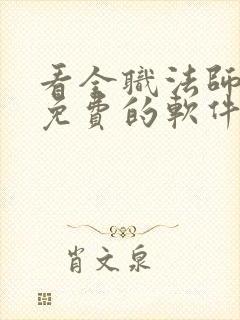 看全職法師
免費的軟件
肖文泉